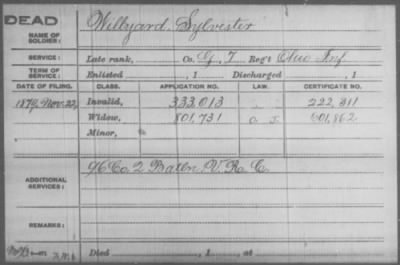 DEAD
NAME OF SOLDIER: Willyard, Sylvester
SERVICE: Late rank, Co. G, 7 Reg't Ohio Inf
TERM OF SERVICE: Enlisted , 1 Discharged , 1
DATE OF FILING. CLASS. APPLICATION NO. LAW. CERTIFICATE NO.
1879, Nov. 22, Invalid, 333,013 222,311
Widow, 801,731 601,862
Minor,
ADDITIONAL SERVICES: 96 Co. 2 Batln V. R. C.
REMARKS:
Died , 1 , at